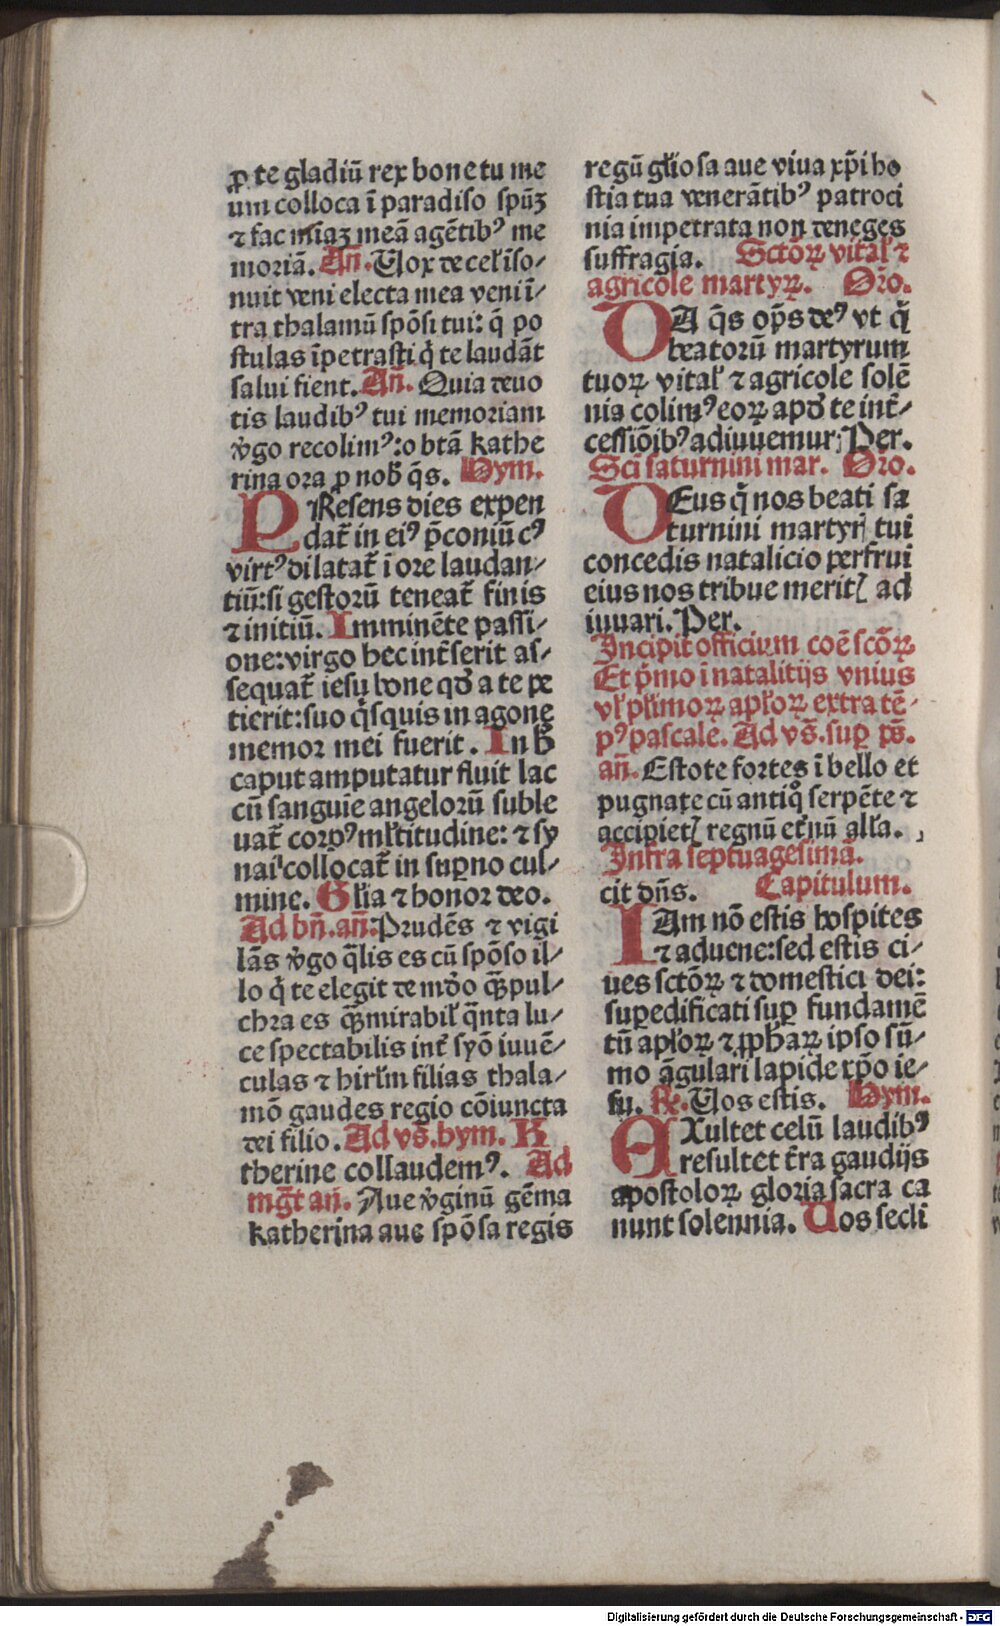 ꝓ te gladiū rex bone tu me
um colloca ī paradiso spūꝫ
⁊ fac m̄iaꝫ meā agētib⁹ me
moriā. An̄. Vox de cel' īso-
nuit veni electa mea veni ī-
tra thalamū spōsi tui: q̄ po
stulas īpetrasti q̇ te laudāt
salui fient. An̄. Quia deuo
tis laudib⁹ tui memoriam
v̇go recolim⁹: o btā kathe
rina ora ꝓ nob̄ q̄s. Hym.
PResens dies expen
dat̄ in ei⁹ p̄coniū c⁹
virt⁹ dilatat̄ ī ore laudan-
tiū: si gestorū teneat̄ finis
⁊ initiū. Imminēte passi-
one: virgo hec int̄serit as-
sequat̄ iesu bone qd̄ a te pe
tierit: suo q̇squis in agone
memor mei fuerit. In h̄
caput amputatur fluit lac
cū sanguie angelorū suble
uat̄ corp⁹ ml'titudine: ⁊ sy
nai collocat̄ in suꝑno cul-
mine. Gl'ia ⁊ honor deo.
Ad bn̄. an̄. Prudēs ⁊ vigi
lās v̇go q̄lis es cū spōso il-
lo q̇ te elegit de mūdo q̄ꝫ pul-
chra es q̄ꝫ mirabil' q̄nta lu-
ce spectabilis int̄ syō iuuē-
culas ⁊ hirl'm filias thala-
mō gaudes regio cōiuncta
dei filio. Ad vs̄. hym. K
therine collaudem⁹. Ad
mḡt an̄. Aue v̇ginū gēma
katherina aue spōsa regis
regū gl'iosa aue viua xp̄i ho
stia tua venerātib⁹ patroci
nia impetrata non deneges
suffragia. Sctōꝝ vital' ⁊
agricole martyꝝ. Oro.
DA q̄s op̄s de⁹ vt q̇
beatorū martyrum
tuoꝝ vital' ⁊ agricole solē
nia colim⁹ eoꝝ apd̄ te int̄-
cessiōib⁹ adiuuemur. Per.
Sci saturnini mar. Oro.
DEus q̇ nos beati sa
turnini martyr̄ tui
concedis natalicio perfrui
eius nos tribue meritꝭ ad
iuuari. Per.
Incipit officium coē scōꝝ
Et p̄mo ī natalitijs vnius
vl' pl'imoꝝ apl'oꝝ extra tē-
p⁹ pascale. Ad vs̄. suꝑ ps̄.
an̄. Estote fortes ī bello et
pugnate cū antiq̊ serpēte ⁊
accipietꝭ regnū et̄nū all'a.
Infra septuagesimā.
cit dn̄s. Capitulum.
IAm nō estis hospites
⁊ aduene: sed estis ci-
ues sctōꝝ ⁊ domestici dei:
suꝑedificati suꝑ fundamē
tū apl'oꝝ ⁊ ꝓphaꝝ ipso sū-
mo āgulari lapide xp̄o ie-
su. ℟. Vos estis. Hym.
EXultet celū laudib⁹
resultet t̄ra gaudijs
apostoloꝝ gloria sacra ca
nunt solennia. Vos secli
Digitalisierung gefördert durch die Deutsche Forschungsgemeinschaft - DFG